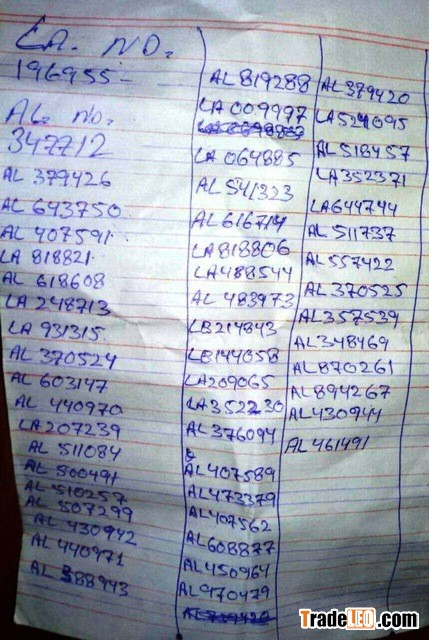 LA. NO.
196955-
AL. no.
347712
AL 379426
AL 643750
AL 407591
LA 818821
AL 618608
LA 248713
LA 931315
AL 370524
AL 603147
AL 440970
LA 207239
AL 511084
AL 500491
AL 510257
AL 507299
AL 430942
AL 440971
AL 388943
AL 819288
LA 009997
LA 064885
AL 541323
AL 616714
LA 818806
LA 488544
AL 483973
LB 214843
LB 144058
LA 209065
LA 352230
AL 376094
&
AL 407589
AL 473379
AL 407562
AL 608877
AL 450964
AL 970479
AL 379420
LA 521095
AL 518457
LA 352371
LA 644744
AL 511737
AL 557422
AL 370525
AL 357539
AL 348469
AL 870261
AL 894267
AL 430944
AL 461491
TradeLEO.com